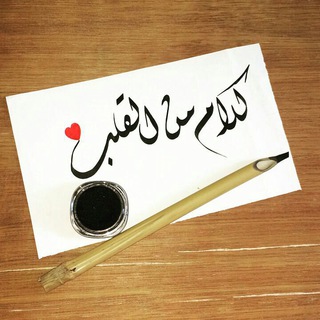 كلام من القلب